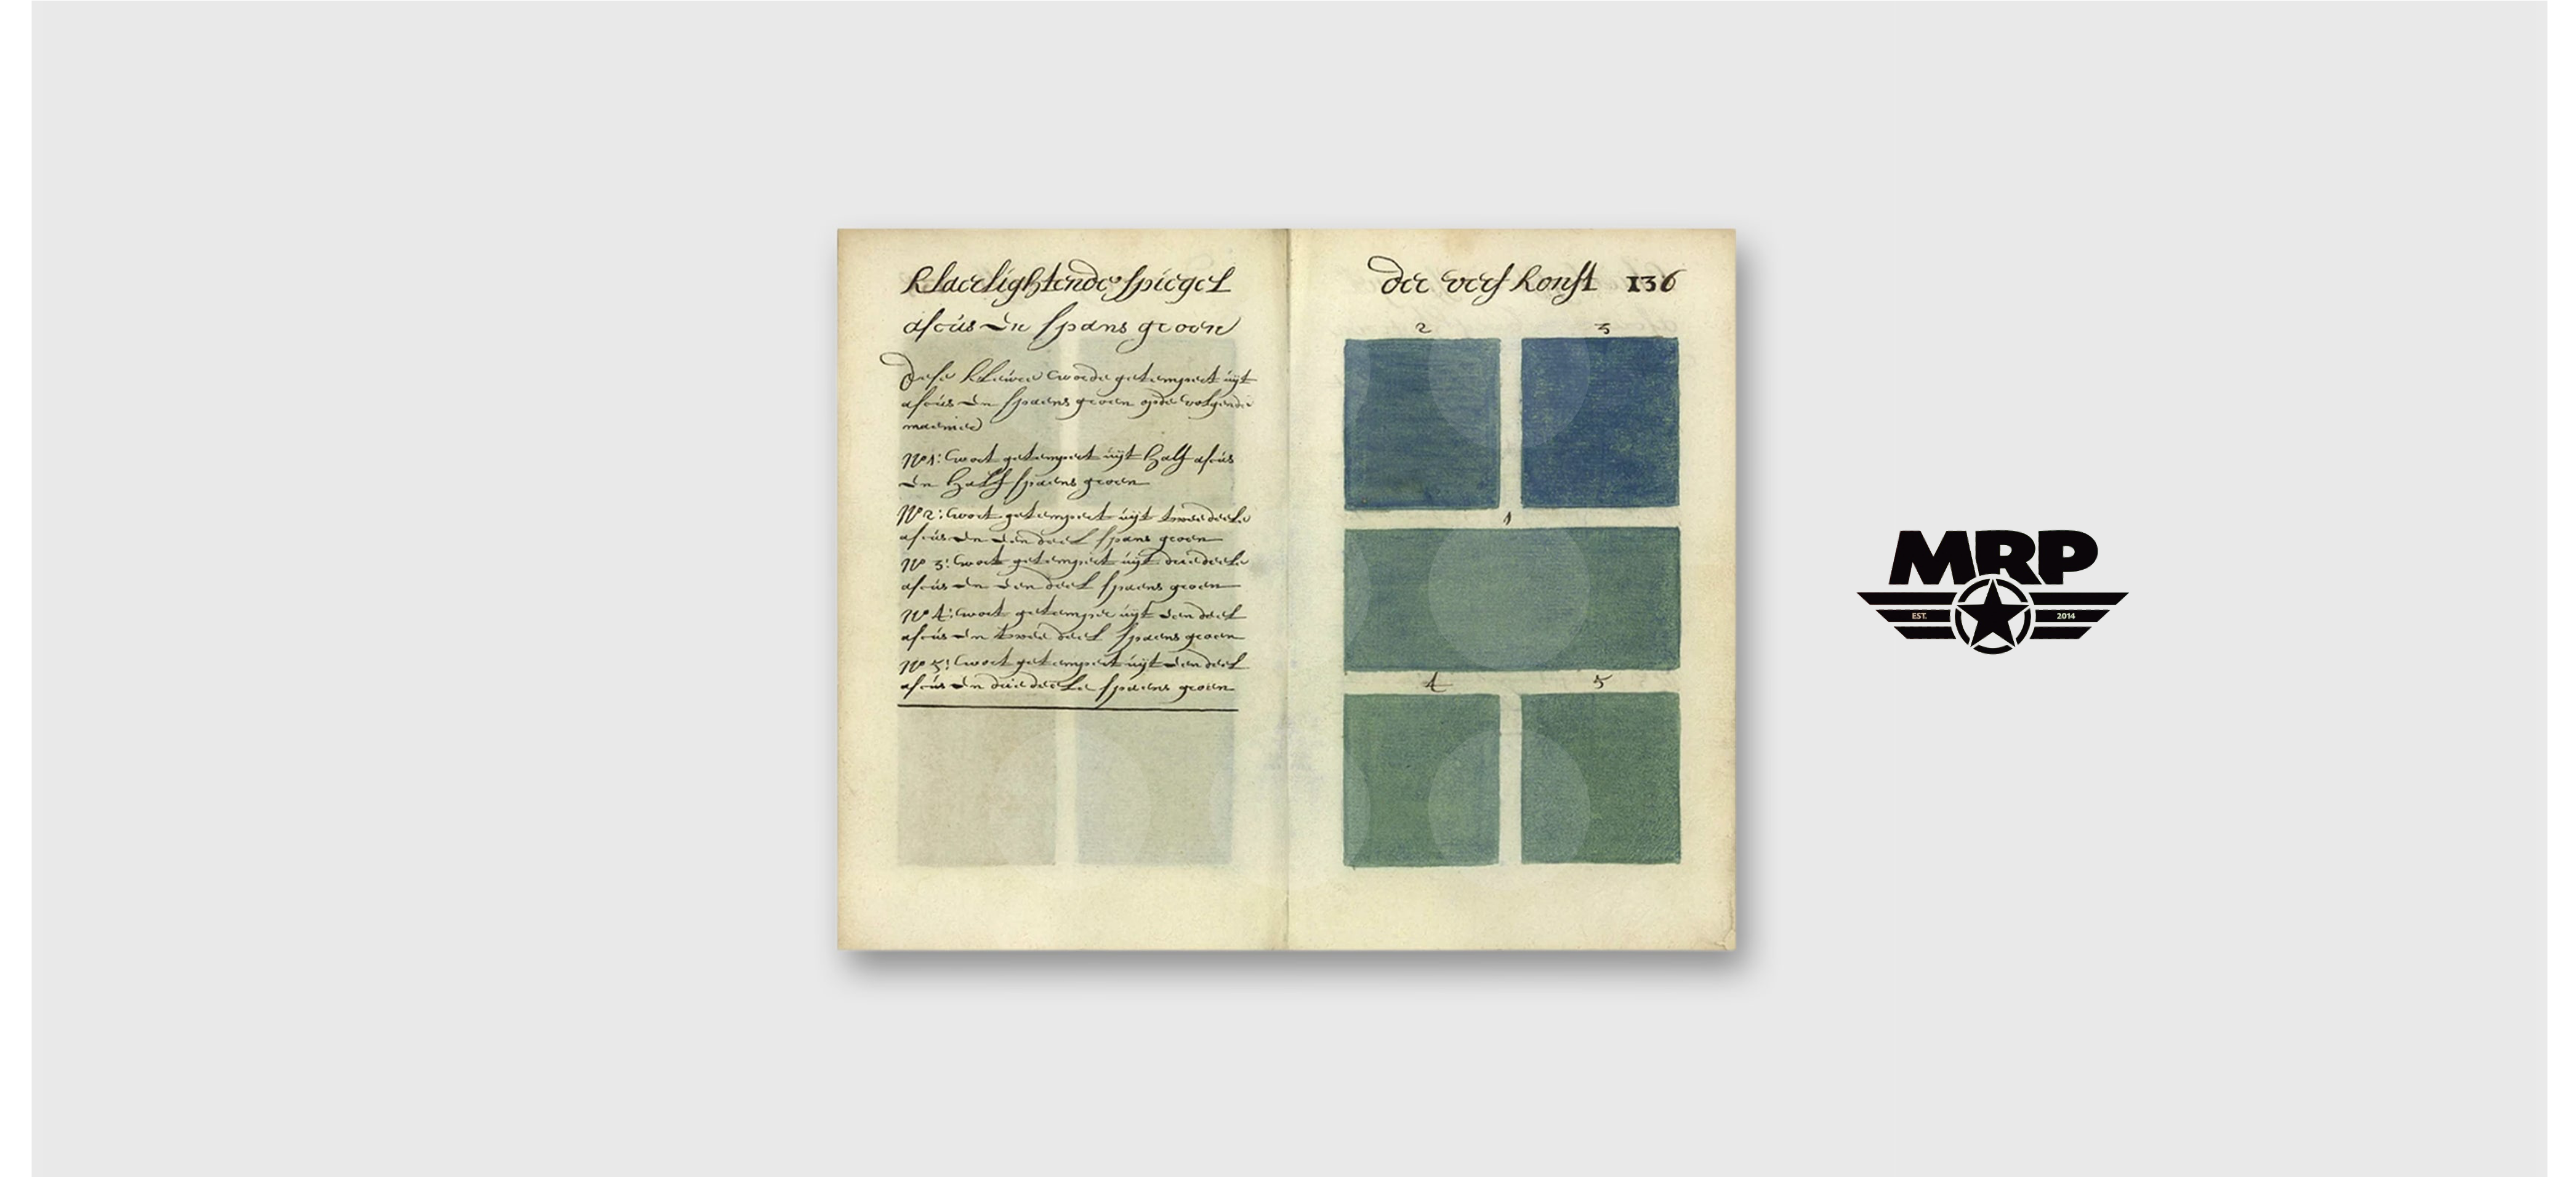 Klaerlightende spiegel
ascús en spans groen
Dese kleúren worde getempert úÿt
ascús en spaens groen op de volgende
manier
N° 1: wort getempert úÿt half ascús
en half spaens groen
N° 2: wort getempert úÿt twee deele
ascús en een deel spans groen
N° 3: wort getempert úÿt drie deele
ascús en een deel spaens groen
N° 4: wort getemper úÿt een deel
ascús en twee deel spaens groen
N° 5: wort getempert úÿt een deel
ascús en drie deele spaens groen
der verf konst 136
2 3
1
4 5
MRP
EST. 2014